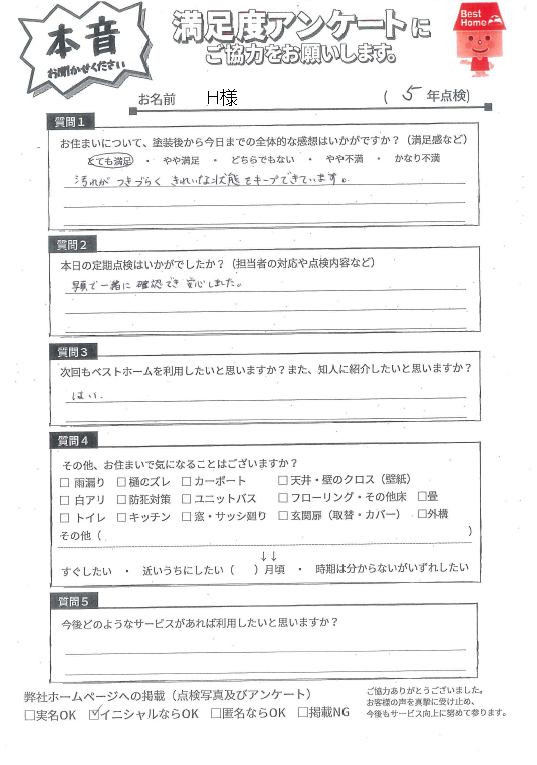 本音
お聞かせください
満足度アンケートに
ご協力をお願いします。
Best Home
お名前 H様 ( 5 年点検)
質問1
お住まいについて、塗装後から今日までの全体的な感想はいかがですか?(満足感など)
とても満足 ・ やや満足 ・ どちらでもない ・ やや不満 ・ かなり不満
汚れがつきづらく きれいな状態をキープできています。
質問2
本日の定期点検はいかがでしたか?(担当者の対応や点検内容など)
写真で一緒に確認でき安心しました。
質問3
次回もベストホームを利用したいと思いますか?また、知人に紹介したいと思いますか?
はい。
質問4
その他、お住まいで気になることはございますか?
□ 雨漏り □ 樋のズレ □ カーポート □ 天井・壁のクロス(壁紙)
□ 白アリ □ 防犯対策 □ ユニットバス □ フローリング・その他床 □畳
□ トイレ □ キッチン □ 窓・サッシ廻り □ 玄関扉(取替・カバー) □外構
その他( )
↓↓
すぐしたい ・ 近いうちにしたい( )月頃 ・ 時期は分からないがいずれしたい
質問5
今後どのようなサービスがあれば利用したいと思いますか?
弊社ホームページへの掲載(点検写真及びアンケート)
□実名OK ☑イニシャルならOK □匿名ならOK □掲載NG
ご協力ありがとうございました。
お客様の声を真摯に受け止め、
今後もサービス向上に努めて参ります。